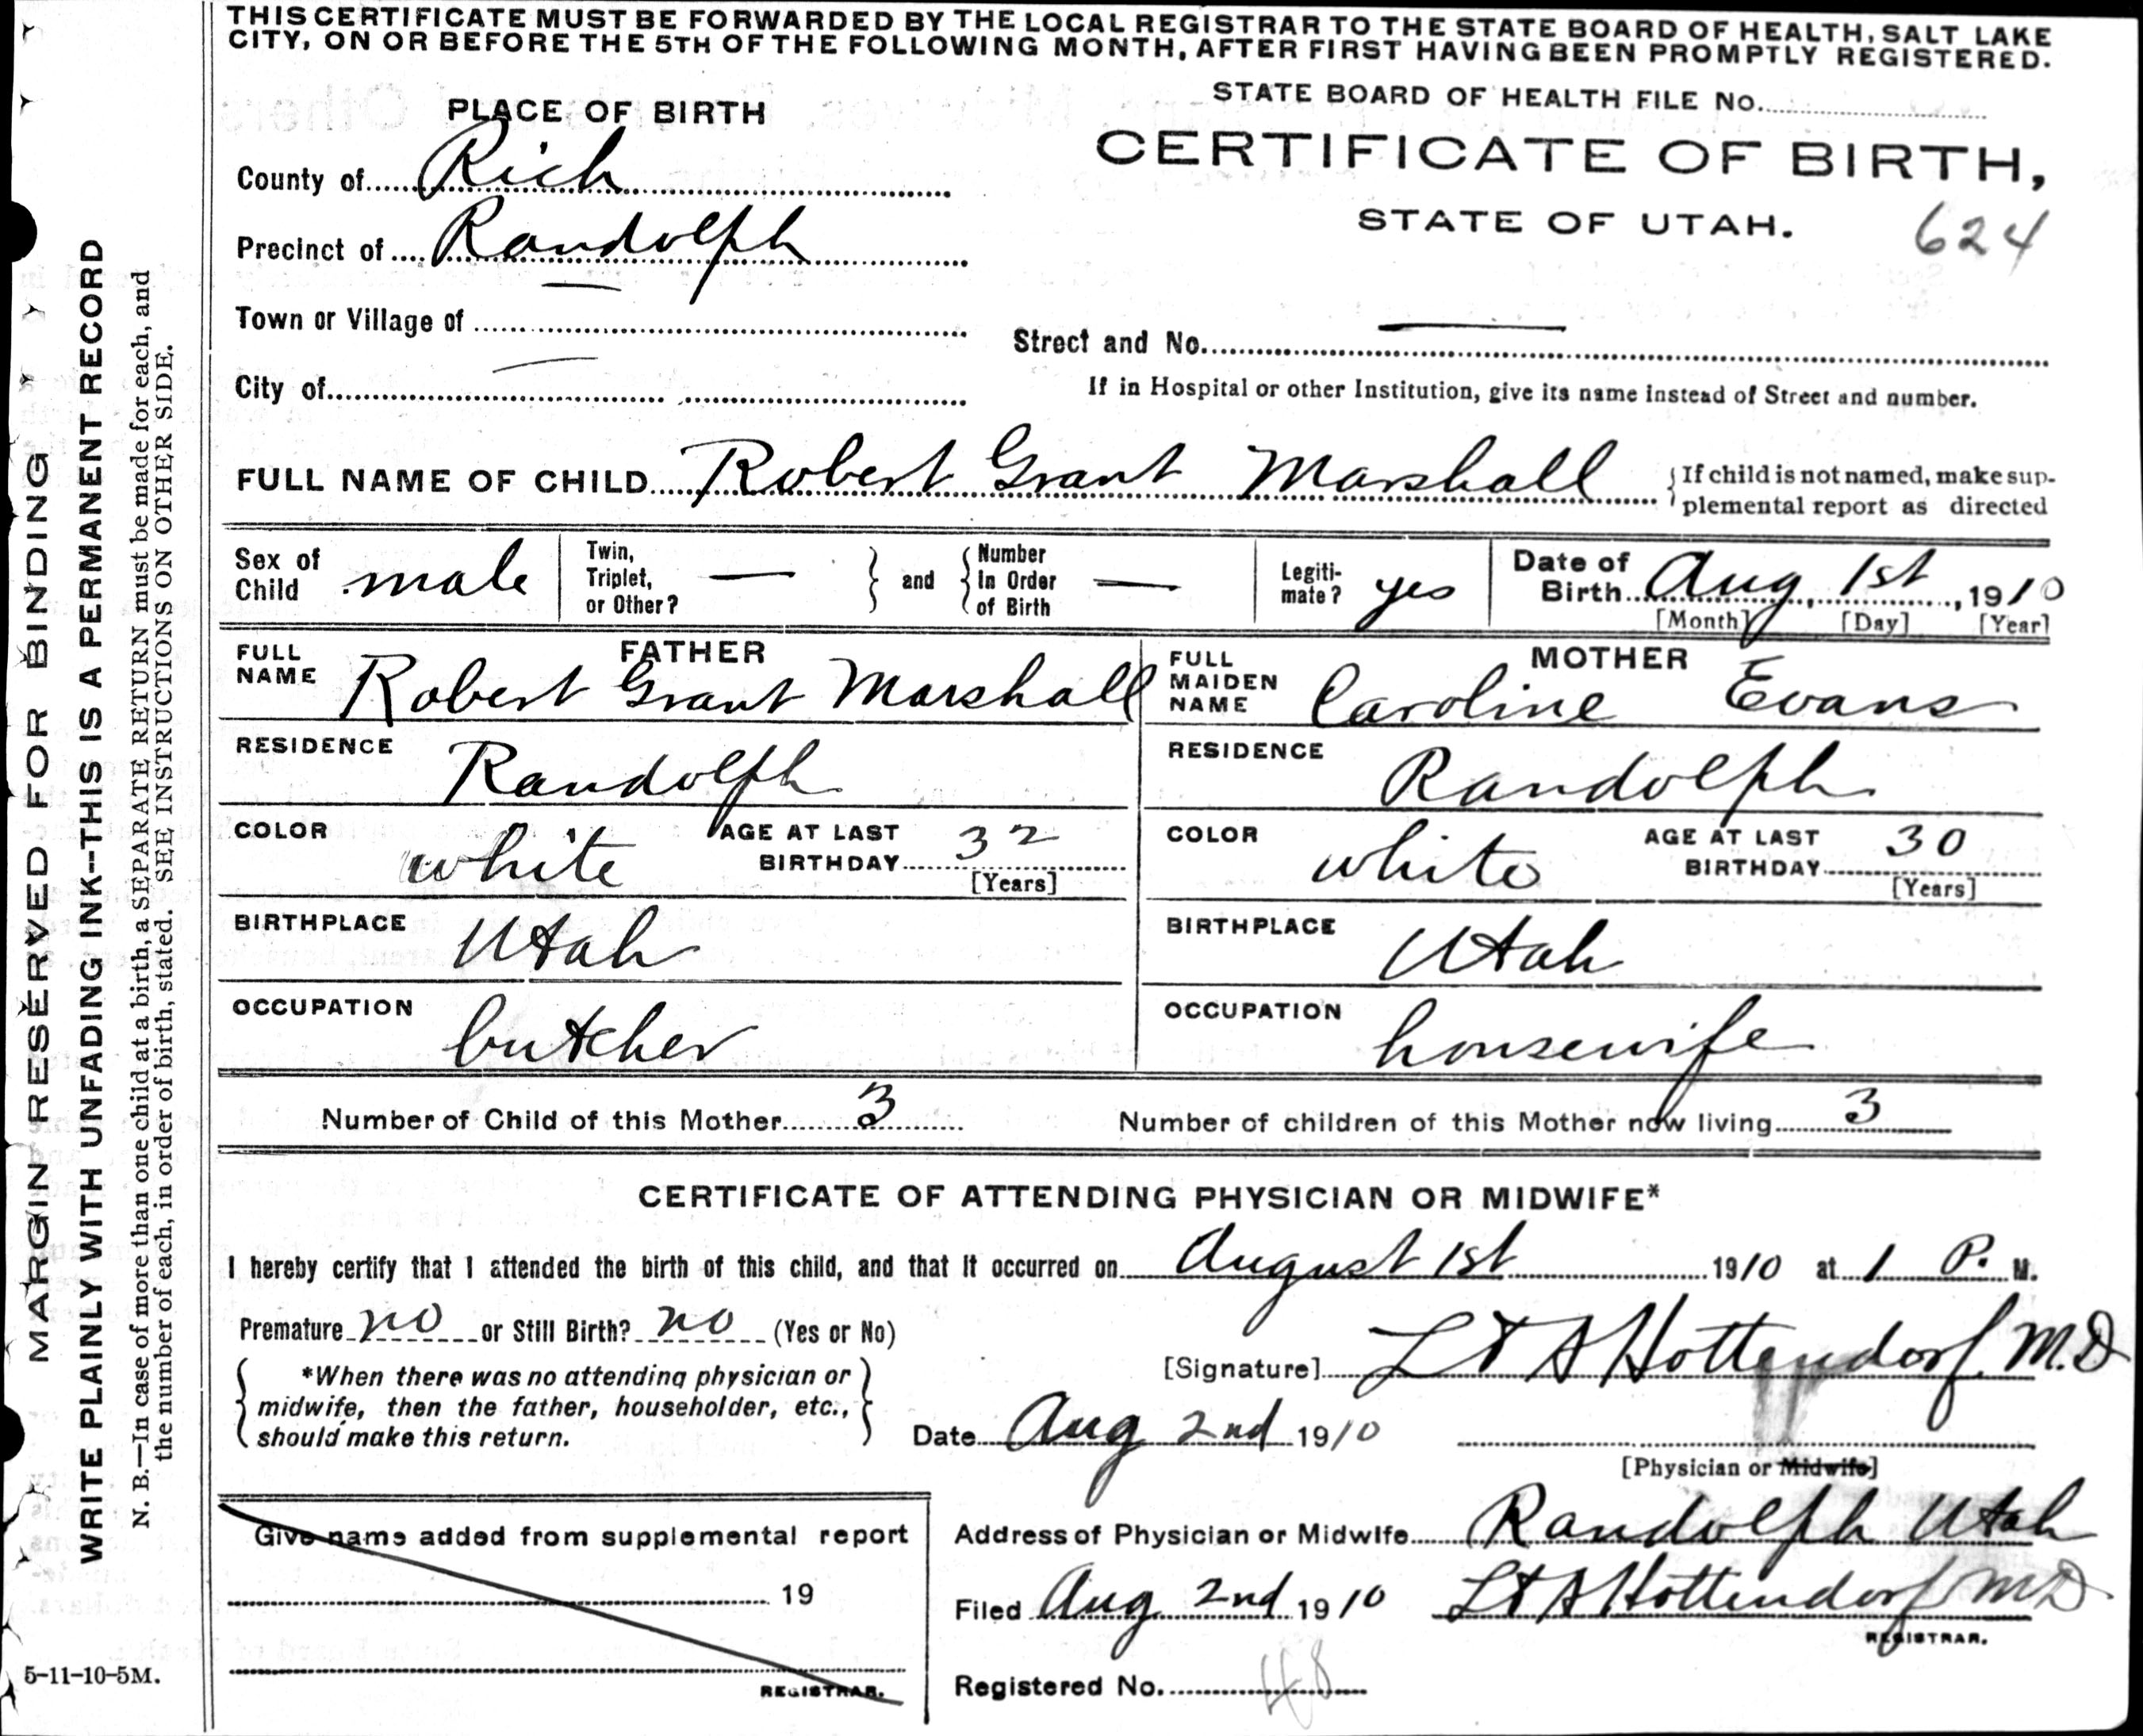 THIS CERTIFICATE MUST BE FORWARDED BY THE LOCAL REGISTRAR TO THE STATE BOARD OF HEALTH, SALT LAKE
CITY, ON OR BEFORE THE 5TH OF THE FOLLOWING MONTH, AFTER FIRST HAVING BEEN PROMPTLY REGISTERED.
STATE BOARD OF HEALTH FILE No.
PLACE OF BIRTH
CERTIFICATE OF BIRTH,
STATE OF UTAH.
624
County of Rich
Precinct of Randolph
Town or Village of —
Street and No. —
City of —
If in Hospital or other Institution, give its name instead of Street and number.
FULL NAME OF CHILD Robert Grant Marshall
{If child is not named, make sup-
plemental report as directed
Sex of Child male
Twin, Triplet, or Other? — } and { Number In Order of Birth —
Legiti-mate? yes
Date of Birth Aug 1st, 1910
[Month] [Day] [Year]
FATHER
FULL NAME Robert Grant Marshall
RESIDENCE Randolph
COLOR white AGE AT LAST BIRTHDAY 32
[Years]
BIRTHPLACE Utah
OCCUPATION butcher
MOTHER
FULL MAIDEN NAME Caroline Evans
RESIDENCE Randolph
COLOR white AGE AT LAST BIRTHDAY 30
[Years]
BIRTHPLACE Utah
OCCUPATION housewife
Number of Child of this Mother 3 Number of children of this Mother now living 3
CERTIFICATE OF ATTENDING PHYSICIAN OR MIDWIFE*
I hereby certify that I attended the birth of this child, and that it occurred on August 1st 1910 at 1 P. M.
Premature no or Still Birth? no (Yes or No)
{*When there was no attending physician or
midwife, then the father, householder, etc.,
should make this return.}
[Signature] Lt A Hottendorf M.D
Date Aug 2nd 1910
[Physician or Midwife]
Address of Physician or Midwife Randolph Utah
Filed Aug 2nd 1910 Lt A Hottendorf MD
REGISTRAR.
Registered No. 48
Give name added from supplemental report
19
REGISTRAR.
MARGIN RESERVED FOR BINDING
WRITE PLAINLY WITH UNFADING INK--THIS IS A PERMANENT RECORD
N. B.—In case of more than one child at a birth, a SEPARATE RETURN must be made for each, and
the number of each, in order of birth, stated. SEE INSTRUCTIONS ON OTHER SIDE.
5-11-10-5M.